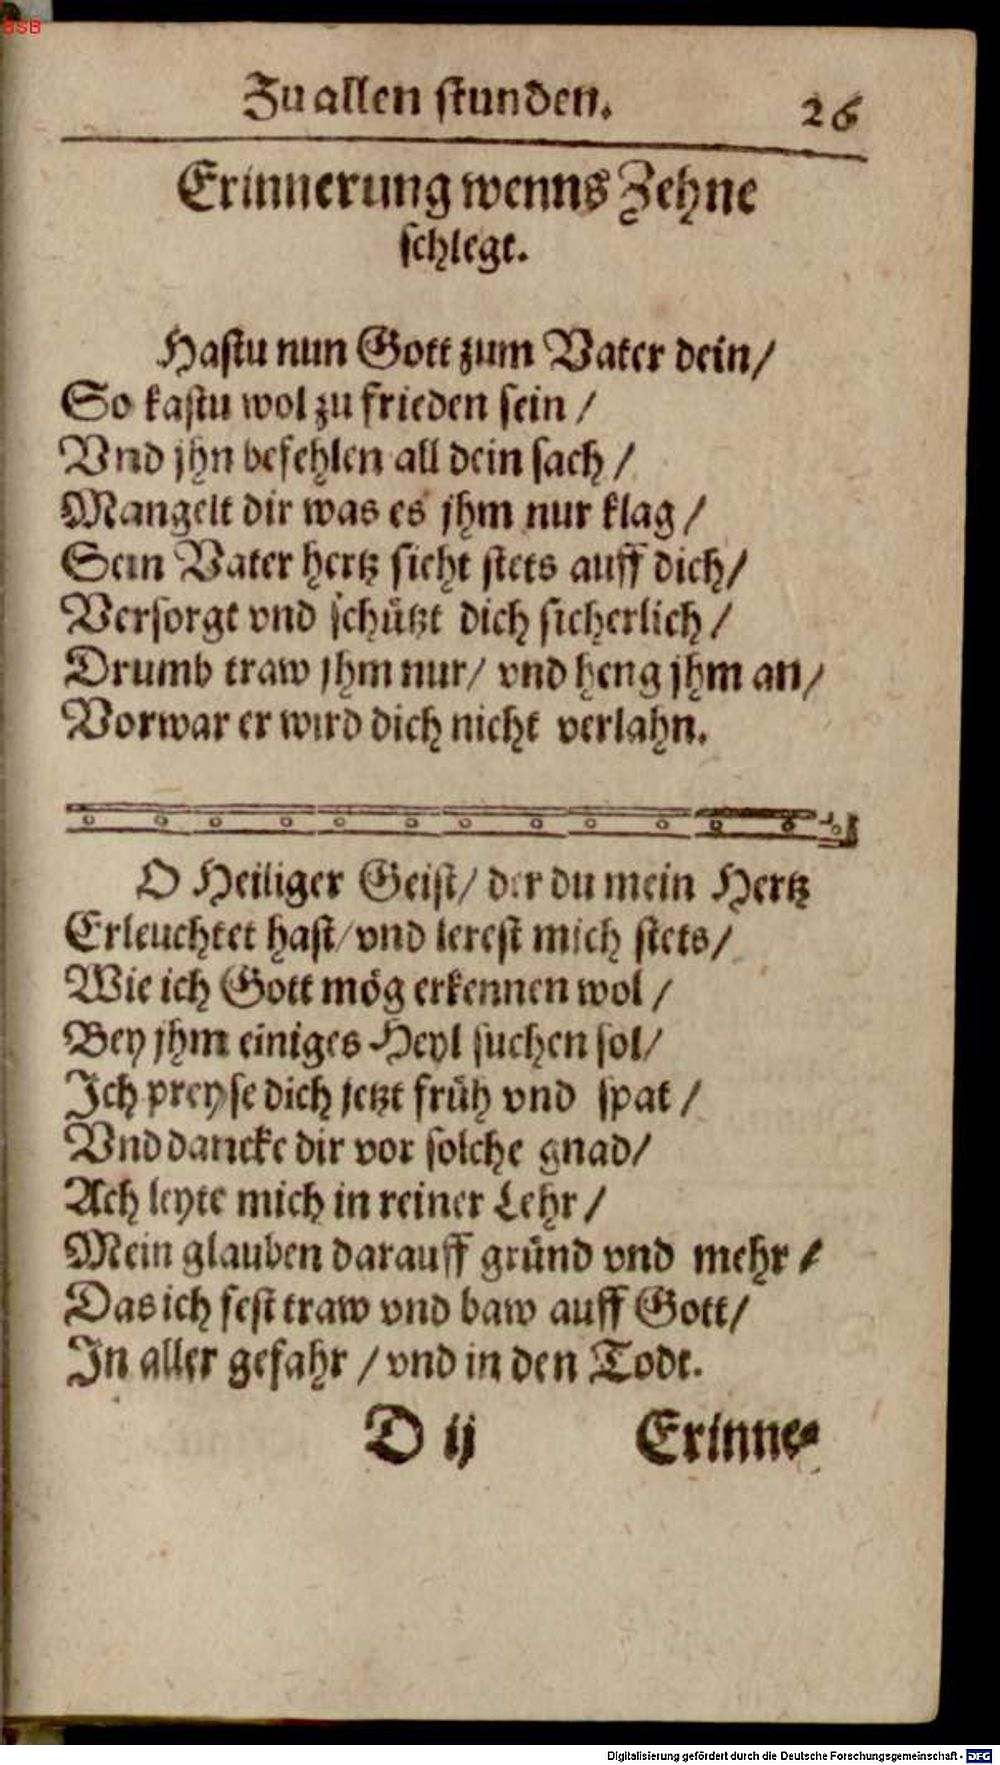 BSB
Zu allen stunden. 26
Erinnerung wenns Zehne
schlegt.
Hastu nun Gott zum Vater dein/
So kastu wol zu frieden sein /
Vnd jhn befehlen all dein sach /
Mangelt dir was es jhm nur klag /
Sein Vater hertz sieht stets auff dich/
Versorgt vnd schützt dich sicherlich /
Drumb traw jhm nur/ vnd heng jhm an/
Vorwar er wird dich nicht verlahn.
O Heiliger Geist/ der du mein Hertz
Erleuchtet hast/ vnd lerest mich stets/
Wie ich Gott mög erkennen wol /
Bey jhm einiges Heyl suchen sol/
Ich preyse dich jetzt früh vnd spat /
Vnd dancke dir vor solche gnad/
Ach leyte mich in reiner Lehr /
Mein glauben darauff gründ vnd mehr /
Das ich fest traw vnd baw auff Gott/
In aller gefahr / vnd in den Todt.
D ij Erinne-
Digitalisierung gefördert durch die Deutsche Forschungsgemeinschaft - DFG